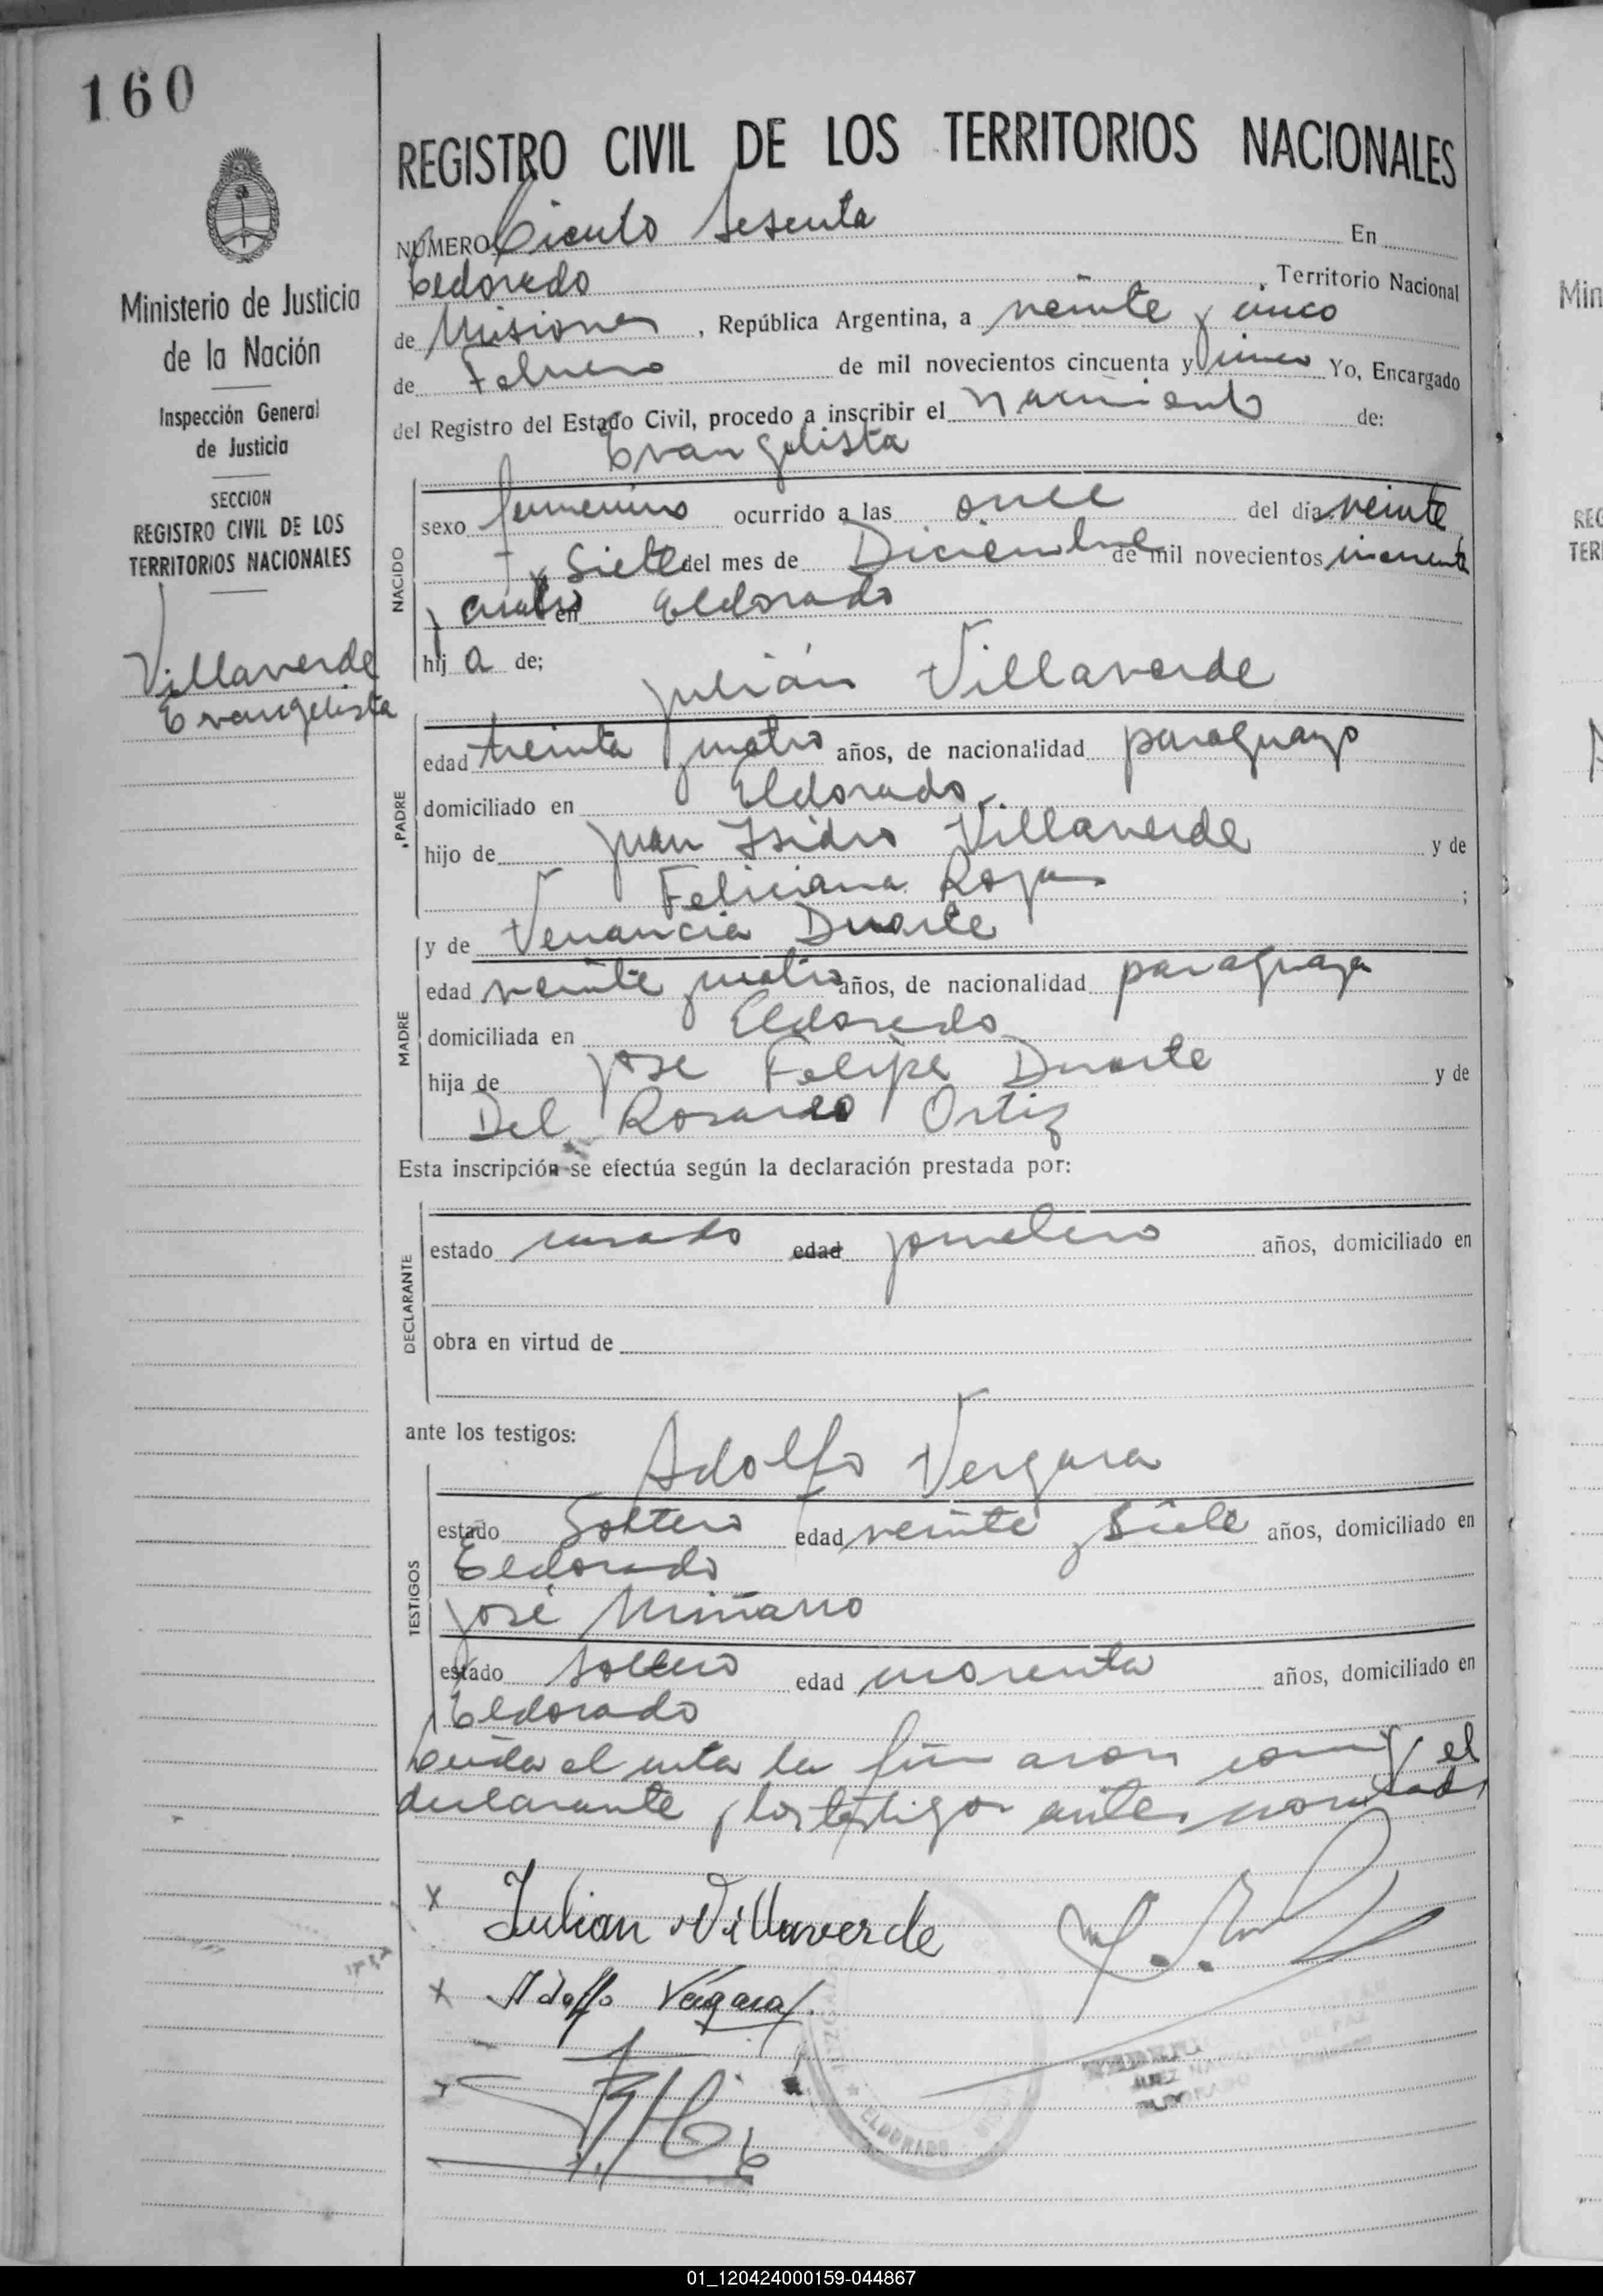 160
Ministerio de Justicia
de la Nación
Inspección General
de Justicia
SECCION
REGISTRO CIVIL DE LOS
TERRITORIOS NACIONALES
Villaverde
Evangelista
REGISTRO CIVIL DE LOS TERRITORIOS NACIONALES
NÚMERO Ciento Sesenta En
Eldorado Territorio Nacional
de Misiones, República Argentina, a veinte y cinco
de Febrero de mil novecientos cincuenta y cinco Yo, Encargado
del Registro del Estado Civil, procedo a inscribir el nacimiento de:
Evangelista
NACIDO
sexo femenino ocurrido a las once del día veinte
y Siete del mes de Diciembre de mil novecientos cincuenta
y cuatro en Eldorado
hij a de;
Julián Villaverde
PADRE
edad treinta y cuatro años, de nacionalidad paraguayo
domiciliado en Eldorado.
hijo de Juan Isidro Villaverde y de
Feliciana Rojas ;
y de Venancia Duarte
MADRE
edad veinte y cuatro años, de nacionalidad paraguaya
domiciliada en Eldorado
hija de José Felipe Duarte y de
Del Rosario Ortiz
Esta inscripción se efectúa según la declaración prestada por:
DECLARANTE
estado casado edad jornalero años, domiciliado en
obra en virtud de
ante los testigos:
Adolfo Vergara
TESTIGOS
estado Soltero edad veinte y Siete años, domiciliado en
Eldorado
José Miñarro
estado soltero edad cuarenta años, domiciliado en
Eldorado
Leida el acta la firmaron conmigo el
declarante y los testigos antes nombrados
x Julian Villaverde
x Adolfo Vergara
ELDORADO
JUEZ NACIONAL DE PAZ
ELDORADO
Min
REG
TER
01_120424000159-044867